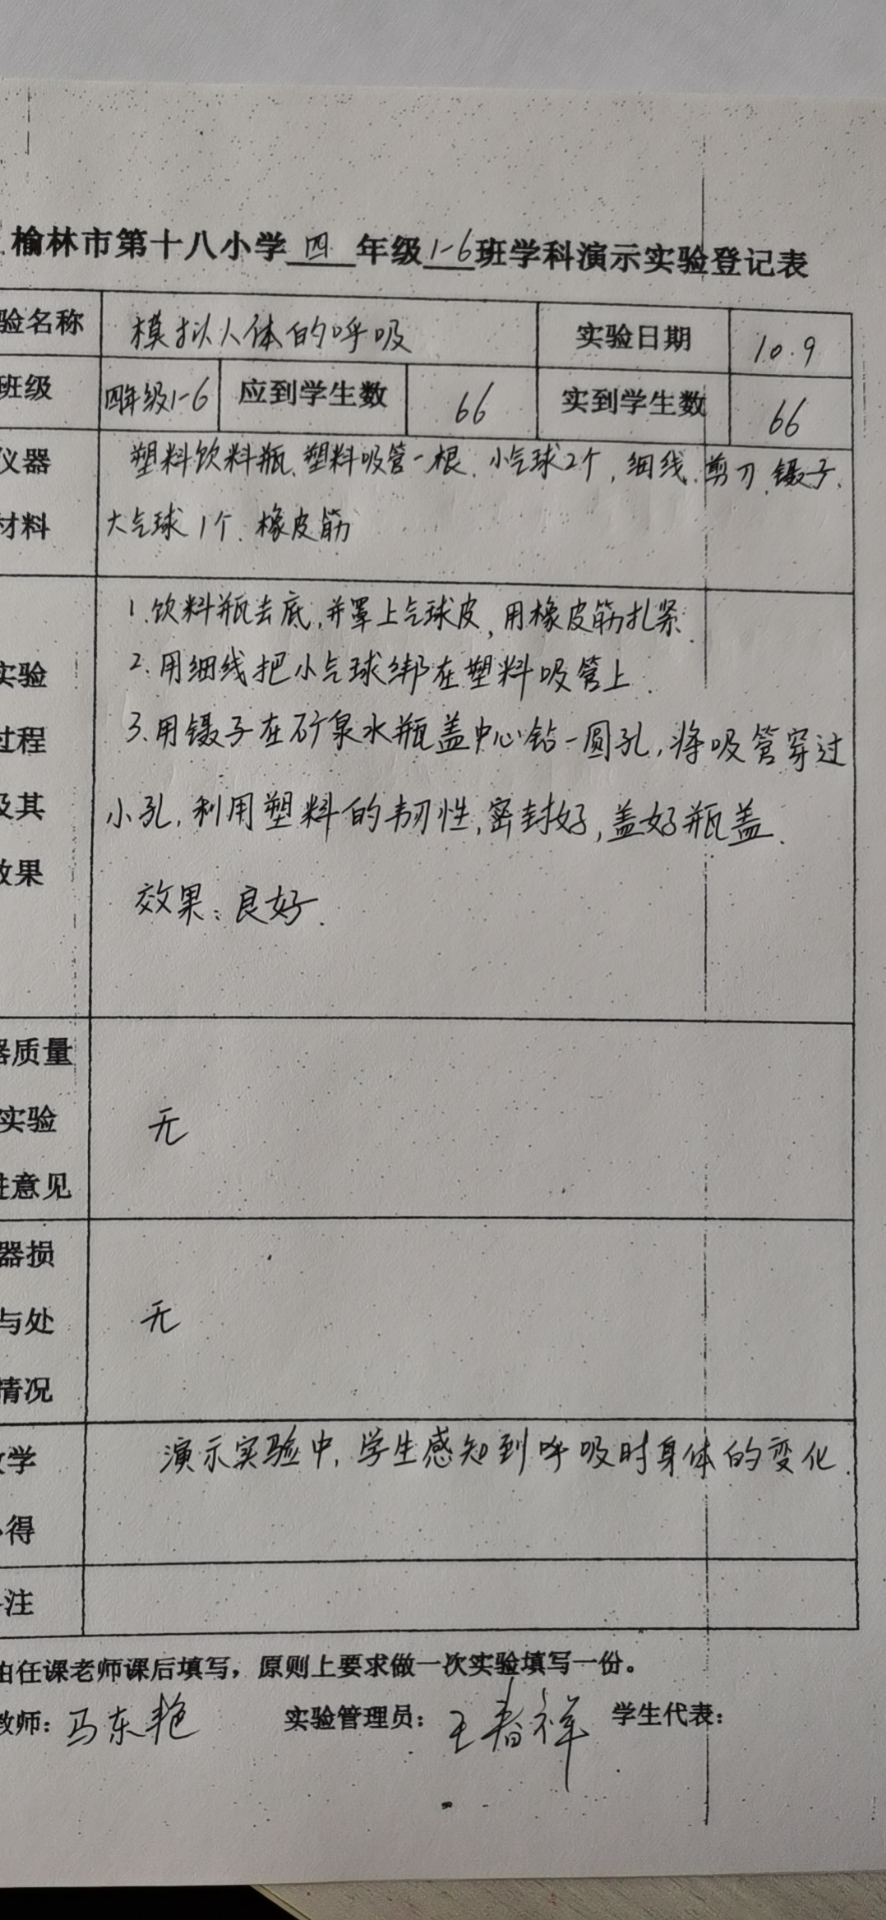 榆林市第十八小学 四 年级 1-6 班学科演示实验登记表
验名称 模拟人体的呼吸 实验日期 10.9
班级 四年级1-6 应到学生数 66 实到学生数 66
仪器 塑料饮料瓶、塑料吸管一根、小气球2个,细线、剪刀、镊子、
材料 大气球1个、橡皮筋
1.饮料瓶去底,并罩上气球皮,用橡皮筋扎紧.
实验 2.用细线把小气球绑在塑料吸管上.
过程 3.用镊子在矿泉水瓶盖中心钻一圆孔,将吸管穿过
及其 小孔,利用塑料的韧性,密封好,盖好瓶盖.
效果 效果:良好.
器质量
实验 无
进意见
器损
与处 无
情况
教学 演示实验中,学生感知到呼吸时身体的变化.
心得
注
由任课老师课后填写,原则上要求做一次实验填写一份。
教师: 马东艳 实验管理员: 王春祥 学生代表: